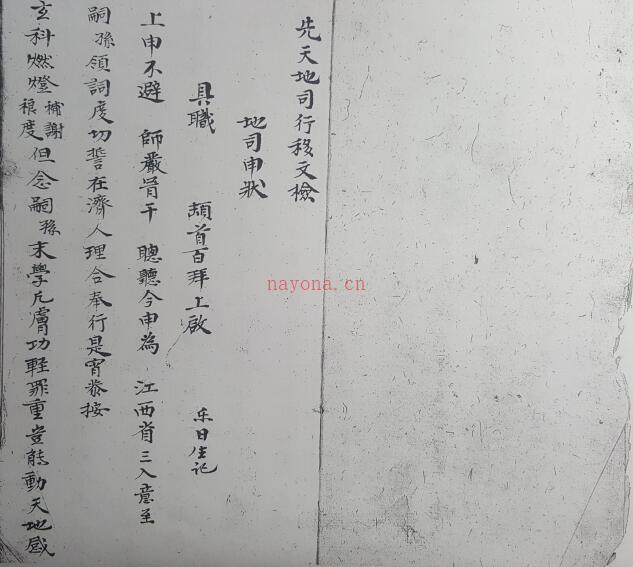 先天地司行移文檢
地司申狀
具職 頓首百拜上啟 樂日生記
上申不避 師嚴冒干 聰聽今申為 江西省三入意至
嗣孫領詞度切誓在濟人理合奉行是宵發按
玄科燃燈補謝禳度但念嗣孫末學凡膚功輕罪重豈能動天地感
nayona.cn